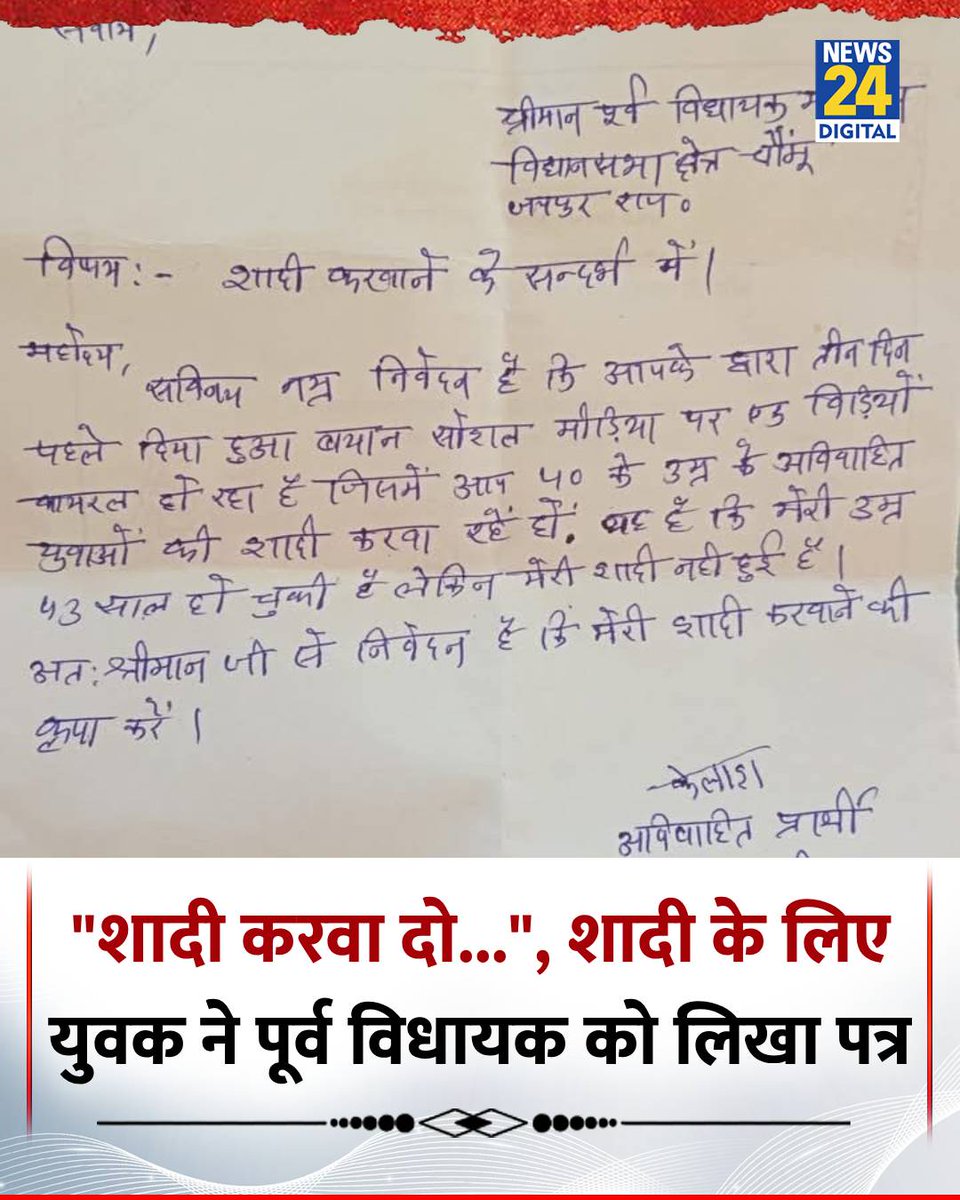 सेवामें,
NEWS
24
DIGITAL
श्रीमान पूर्व विधायक
विधानसभा क्षेत्र चौंमू
जयपुर राज०
विषय:- शादी करवाने के सन्दर्भ में।
महोदय,
सविनय नम्र निवेदन है कि आपके द्वारा तीन दिन
पहले दिया हुआ बयान सोशल मीडिया पर एक विडियों
वायरल हो रहा है जिसमें आप 40 के उम्र के अविवाहित
युवाओं की शादी करवा रहें हों. यह है कि मेरी उम्र
43 साल हो चुकी है लेकिन मेरी शादी नही हुई है।
अत: श्रीमान जी से निवेदन है कि मेरी शादी करवाने की
कृपा करें।
केलाश
अविवाहित प्रार्थी
"शादी करवा दो...", शादी के लिए
युवक ने पूर्व विधायक को लिखा पत्र